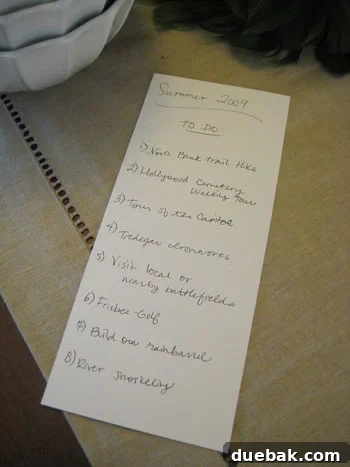 Summer 2009
TO DO
1) North Bank Trail Hike
2) Hollywood Cemetery
Walking Tour
3) Tour of the Capitol
4) Tredegar Ironworks
5) Visit local or
nearby battlefields
6) Frisbee Golf
7) Build our rainbarrel
8) River Snorkeling
duebak.com